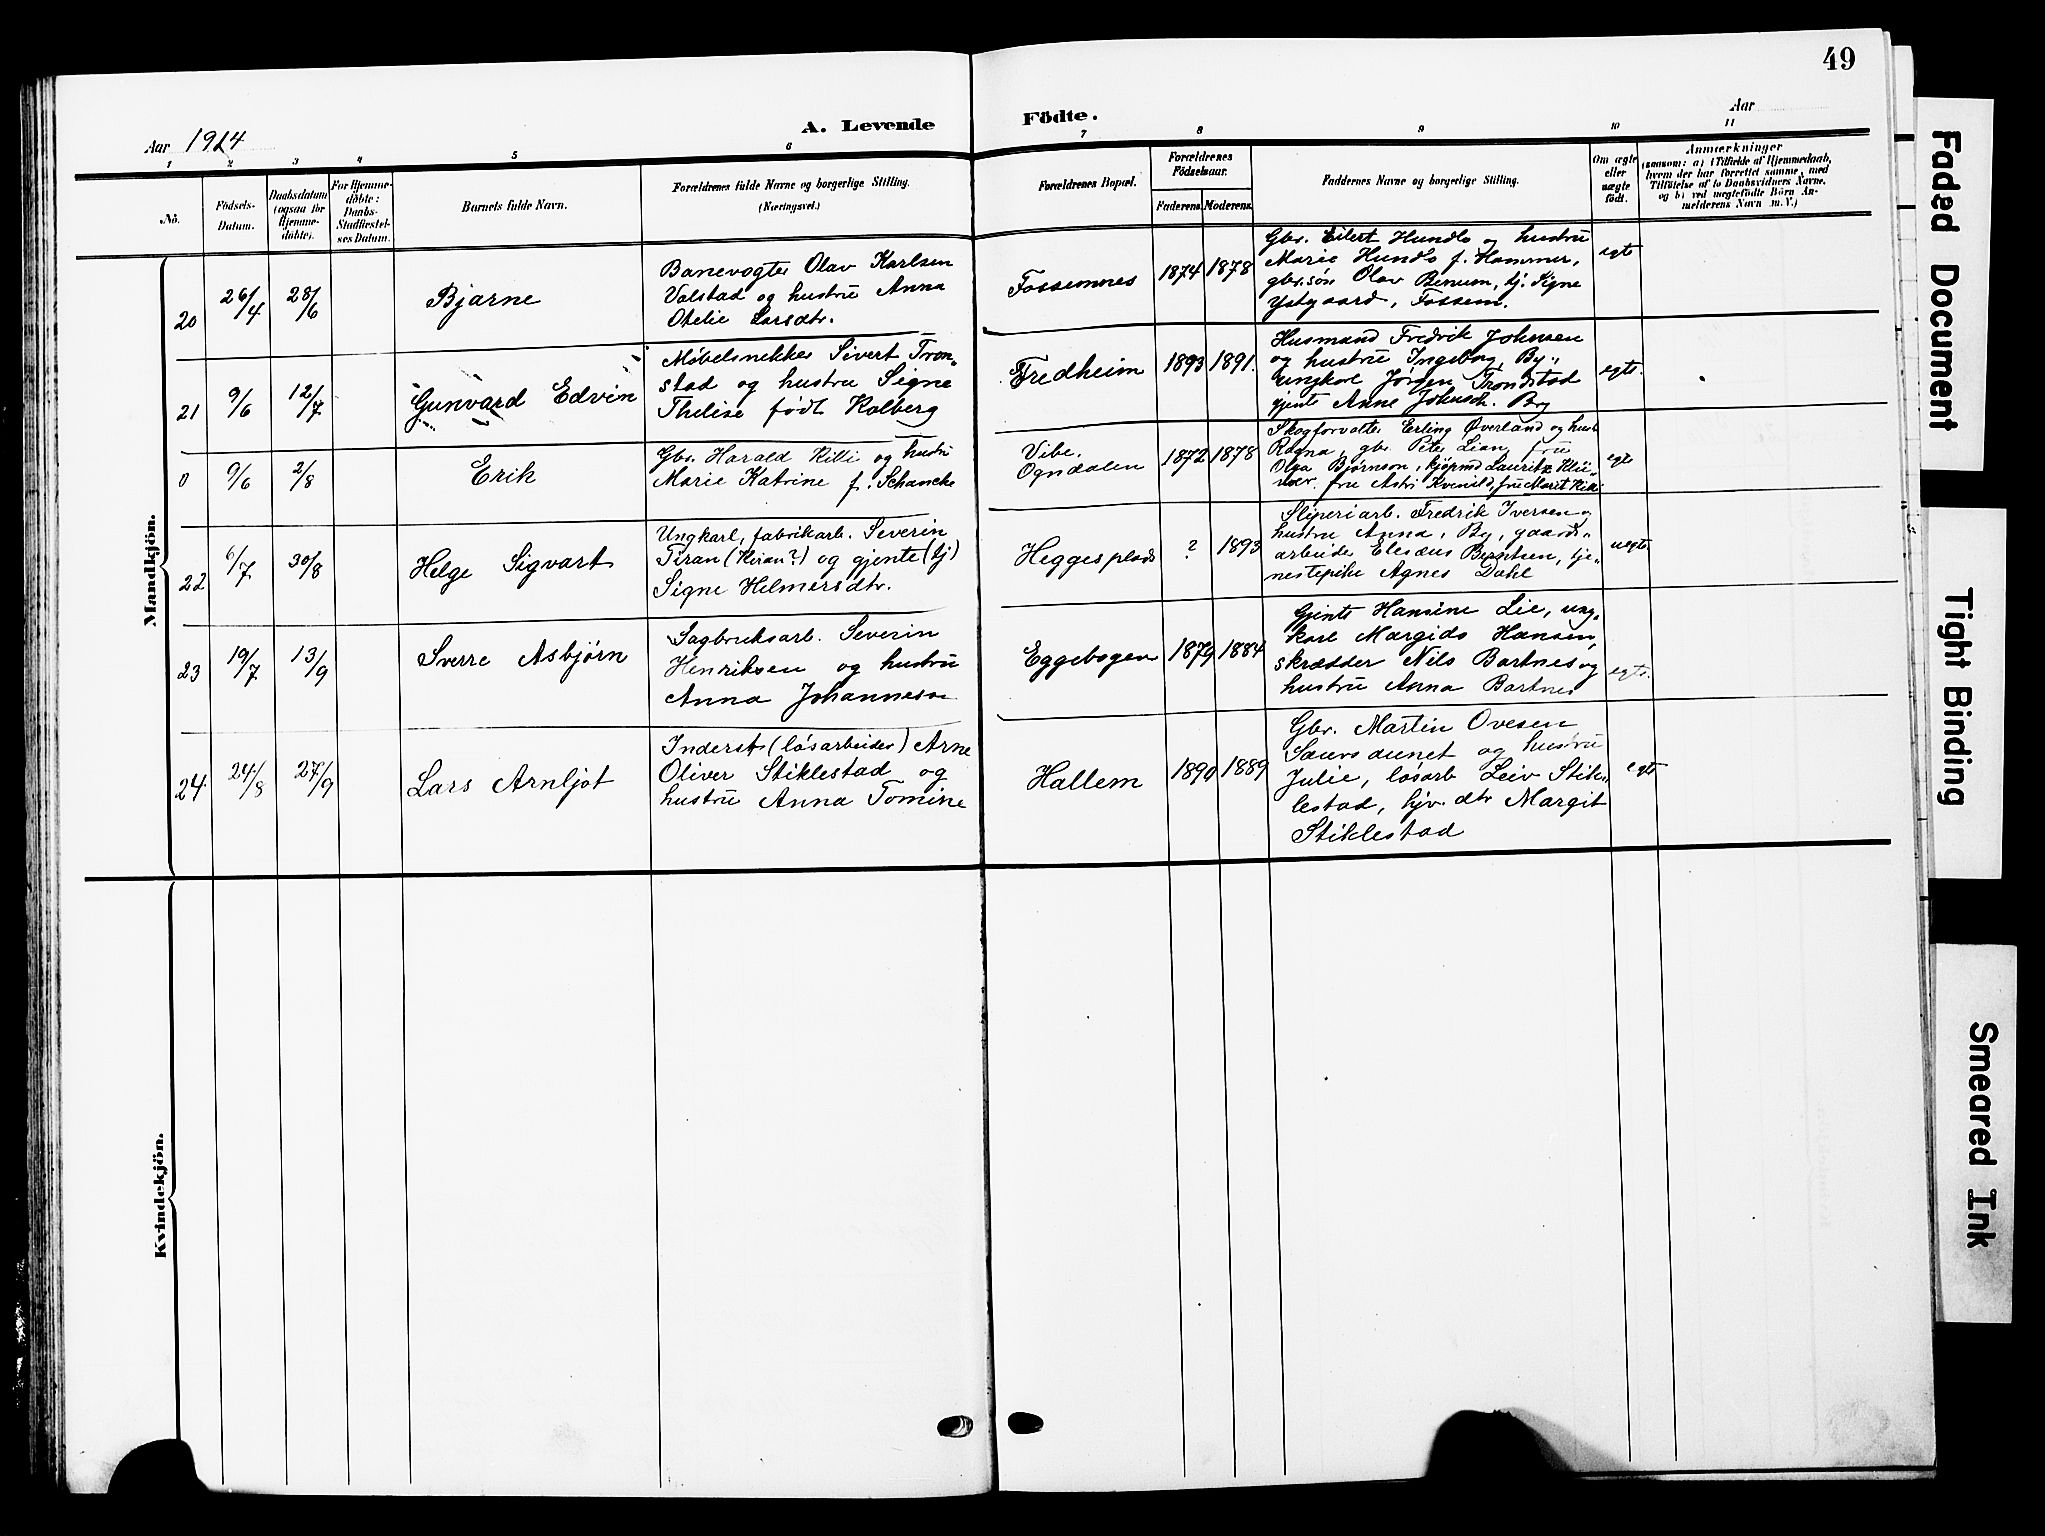 49
Aar 1914
A. Levende Födte.
Aar
1 2 3 4 5 6 7 8 9 10 11
No.
Födsels-
Datum.
Daabsdatum
(ogsaa for
Hjemme-
döbte).
For Hjemme-
döbte:
Daabs-
Stadfæstel-
ses Datum.
Barnets fulde Navn.
Forældrenes fulde Navne og borgerlige Stilling.
(Næringsvei.)
Forældrenes Bopæl.
Forældrenes
Födselsaar.
Faderens. Moderens.
Faddernes Navne og borgerlige Stilling.
Om ægte
eller
uægte
födt.
Anmærkninger
(saasom: a) i Tilfælde af Hjemmedaab,
hvem der har forrettet samme, med
Tilföielse af to Daabsvidners Navne,
og b) ved uægtefödte Börn An-
melderens Navn m. V.)
Mandkjön.
20
26/4
28/6
Bjarne
Banevogter Olav Karlsen
Valstad og hustru Anna
Otelie Larsdtr.
Fossemnes
1874
1878
Gbr. Eilert Hundlo og hustru
Marie Hundlo f. Hammer,
gbr.søn Olav Benum, tj. Signe
Ystgaard, Fossem.
egte
21
9/6
12/7
Gunvard Edvin
Møbelsnekker Sivert Tron-
stad og hustru Signe
Thelise født Kolberg
Fredheim
1893
1891.
Husmand Fredrik Johnsen
og hustru Ingeborg, By,
ungkarl Jørgen Trondstad
gjente Anne Johnsdt. By
egte.
0
9/6
2/8
Erik
Gbr. Harald Killi og hustru
Marie Katrine f. Schancke
Vibe,
Ogndalen
1872
1878
Skogforvalter Erling Øverland og hustr
Ragna, gbr. Peter Lian, fru
Olga Bjørnson, kjøpmd Lauritz Klü-
wer, fru Astri Kvenild, fru Marit Killi
egte
22
6/7
30/8
Helge Sigvart
Ungkarl, fabrikarb. Severin
Tiran (Kiran?) og gjente (tj)
Signe Hilmarsdtr.
Heggesplads
?
1893
Sliperiarb. Fredrik Iversen og
hustru Anna, By, gaards-
arbeider Elesæus Berntsen, tje-
nestepike Agnes Dahl
uegte
23
19/7
13/9
Sverre Asbjørn
Sagbruksarb. Severin
Henriksen og hustru
Anna Johannesen
Eggebogen
1879
1884
Gjente Hansine Lie, ung-
karl Margido Hansen,
skrædder Nils Bartnes og
hustru Anna Bartnes
egte.
24
24/8
27/9
Lars Arnljot
Inderst (løsarbeider) Arne
Oliver Stiklestad og
hustru Anna Tomine
Hallem
1890
1889
Gbr. Martin Ovesen
Saursaunet og hustru
Julie, løsarb Leiv Stik-
lestad, hjv. dtr Margit
Stiklestad
egte
Kvindekjön.
Faded Document
Tight Binding
Smeared Ink